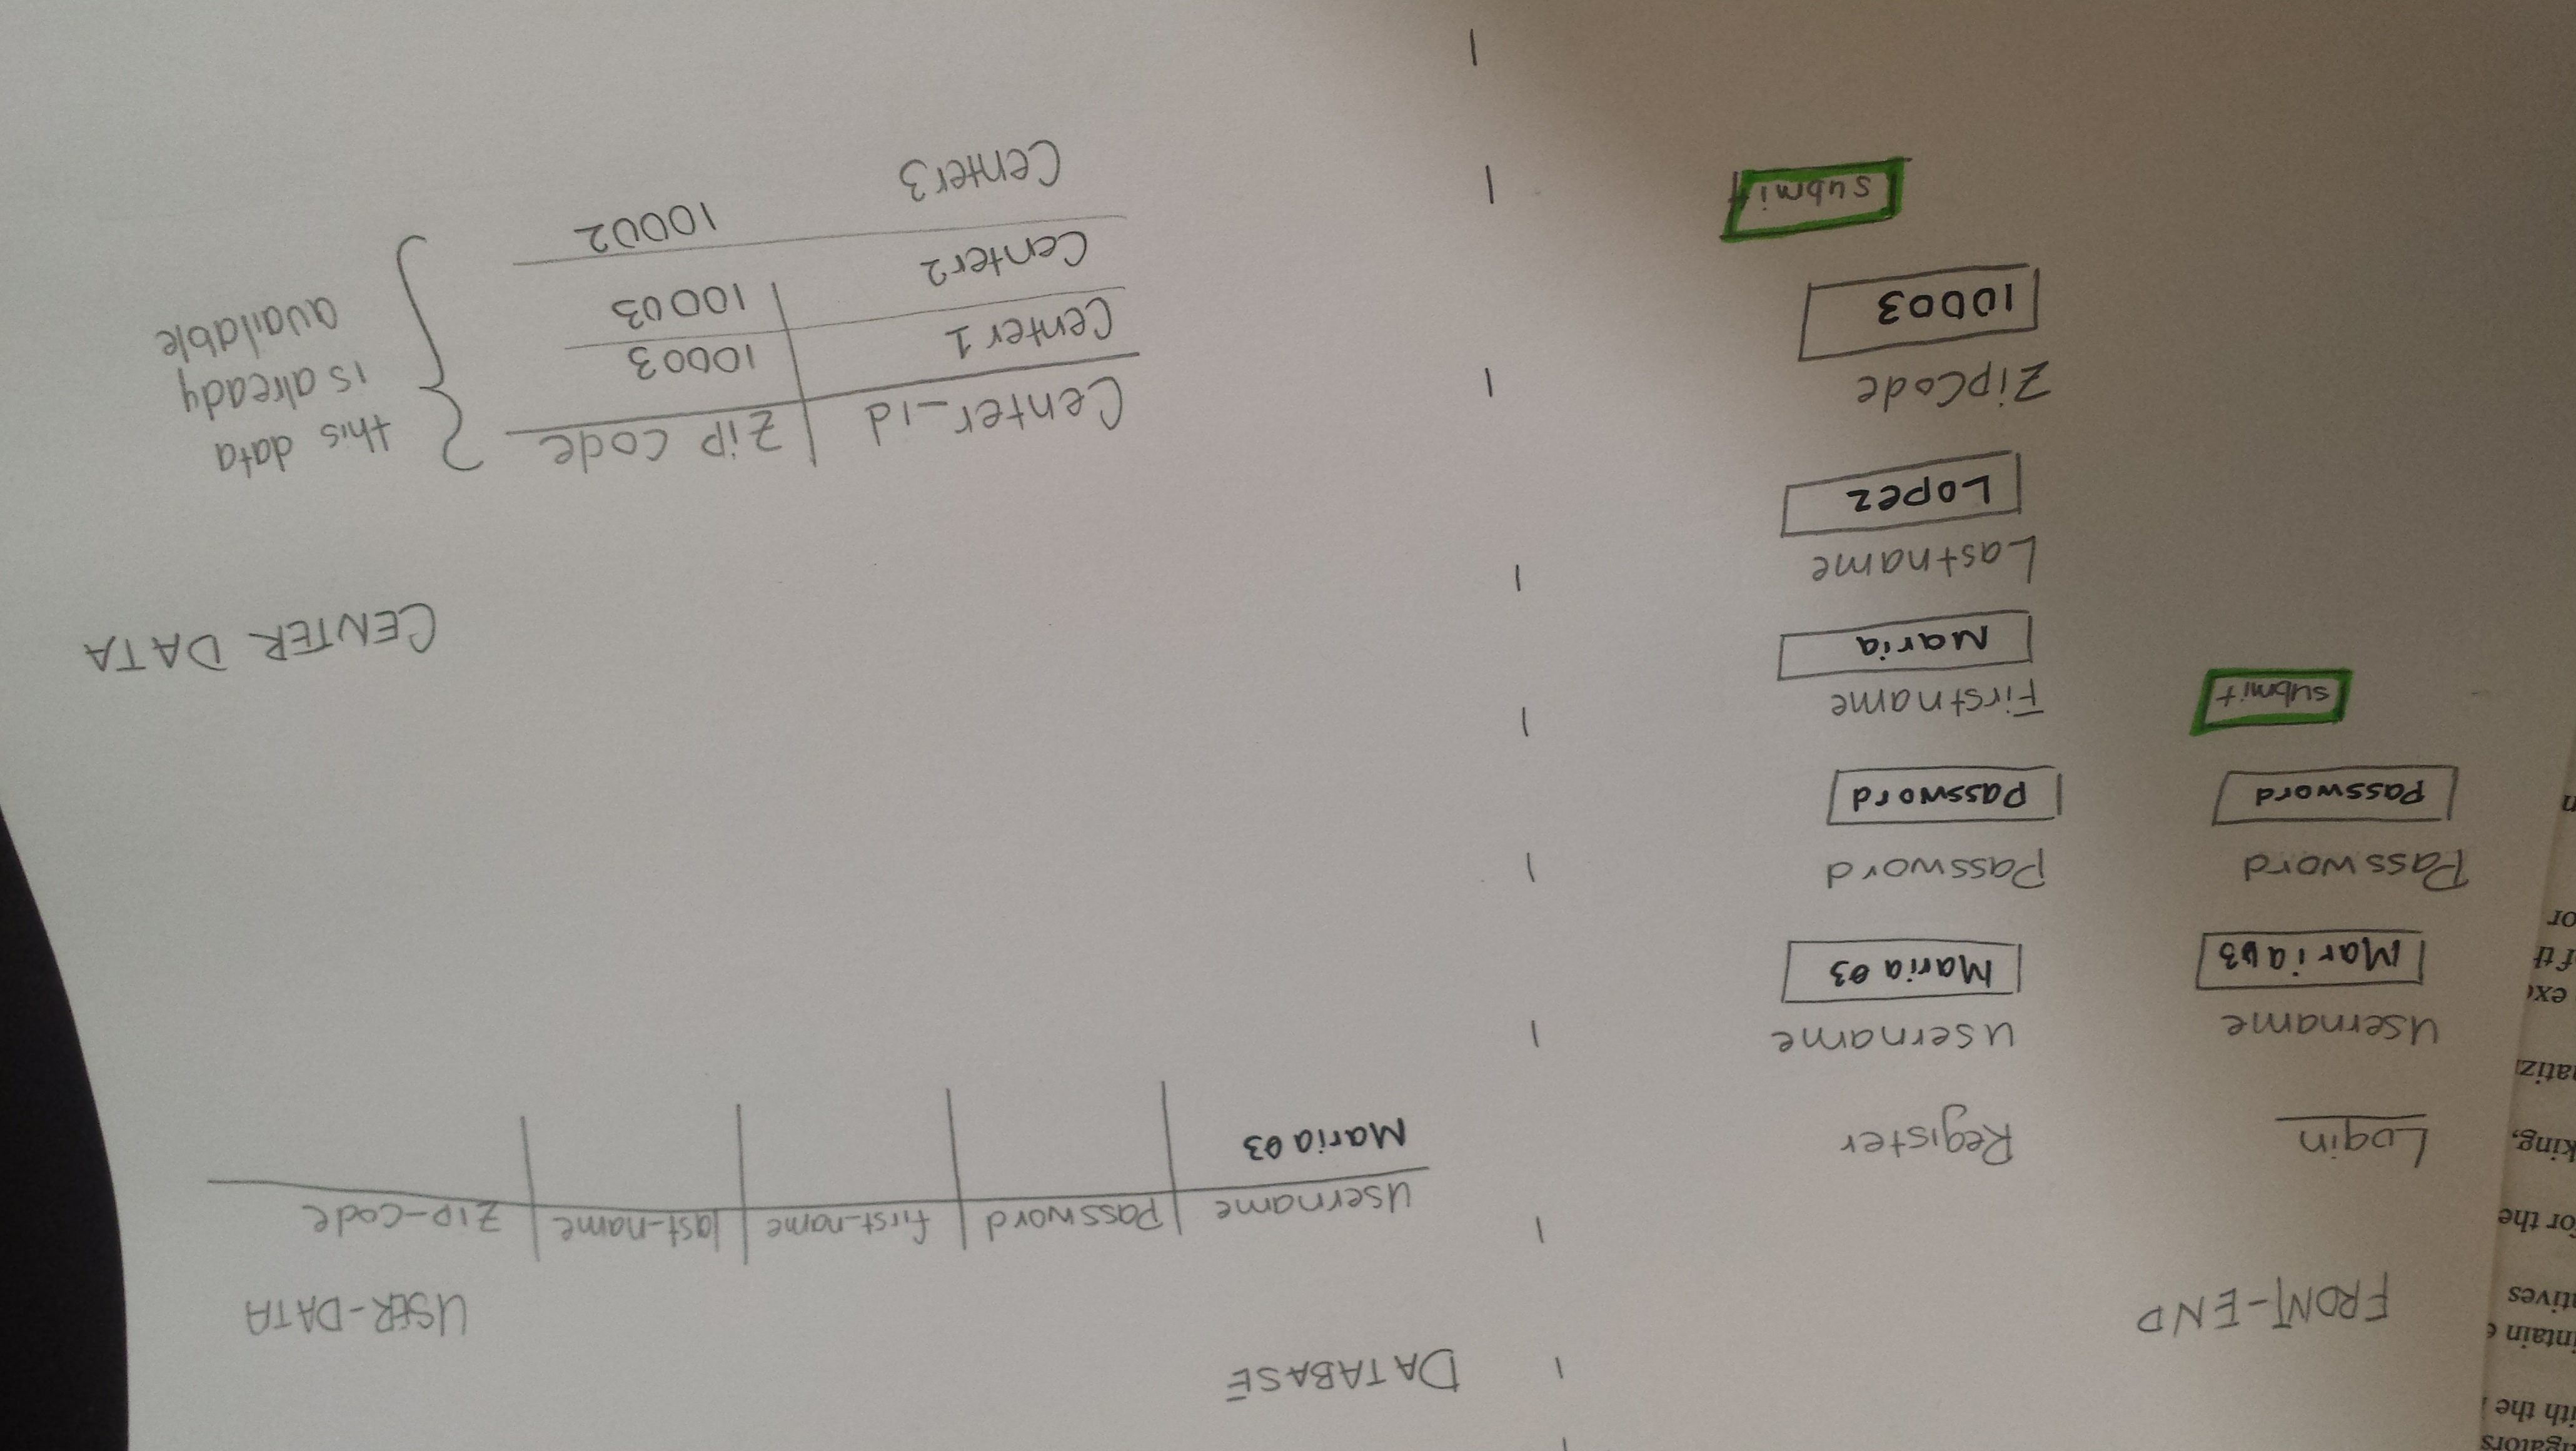 igators
ith the
intain e
atives
for the
king,
atiz
exc
f th
or
n
FRONT-END
Login
Username
Maria03
Password
Password
submit
Register
username
Maria 03
Password
Password
Firstname
Maria
Lastname
Lopez
ZipCode
10003
submit
DATABASE
USER-DATA
Username Password first_name last_name Zip-code
Maria 03
CENTER DATA
Center_id Zip code
Center 1 10003
Center2 10003
Center3 10002
this data
is already
available